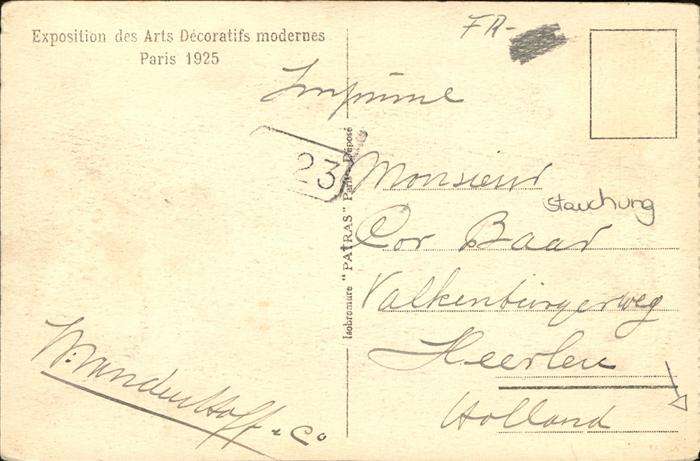 Exposition des Arts Décoratifs modernes
Paris 1925
FR-
Imprimé
23
Monsieur
stauchung
Cor Baar
Valkenburgerweg
Heerlen
Holland
Isobromure "PATRAS" Paris Déposé
& Co